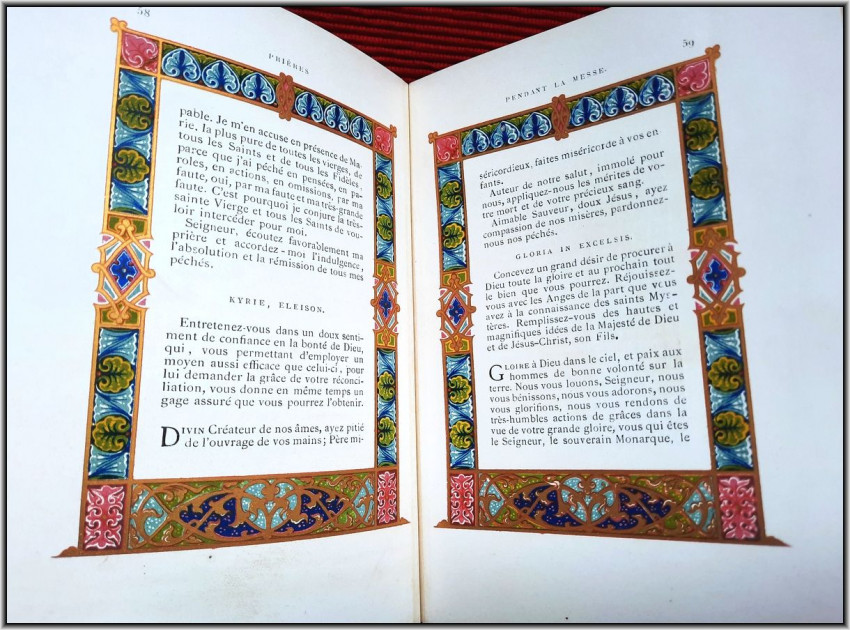 58
PRIÈRES
pable. Je m'en accuse en présence de Ma-
rie, la plus pure de toutes les vierges, de
tous les Saints et de tous les Fidèles,
parce que j'ai péché en pensées, en pa-
roles, en actions, en omissions, par ma
faute, oui, par ma faute et ma très-grande
faute. C'est pourquoi je conjure la très-
sainte Vierge et tous les Saints de vou-
loir intercéder pour moi.
Seigneur, écoutez favorablement ma
prière et accordez-moi l'indulgence,
l'absolution et la rémission de tous mes
péchés.
KYRIE, ELEISON.
Entretenez-vous dans un doux senti-
ment de confiance en la bonté de Dieu,
qui, vous permettant d'employer un
moyen aussi efficace que celui-ci, pour
lui demander la grâce de votre réconci-
liation, vous donne en même temps un
gage assuré que vous pourrez l'obtenir.
DIVIN Créateur de nos âmes, ayez pitié
de l'ouvrage de vos mains; Père mi-
59
PENDANT LA MESSE.
séricordieux, faites miséricorde à vos en
fants.
Auteur de notre salut, immolé pour
nous, appliquez-nous les mérites de vo-
tre mort et de votre précieux sang.
Aimable Sauveur, doux Jésus, ayez
compassion de nos misères, pardonnez-
nous nos péchés.
GLORIA IN EXCELSIS.
Concevez un grand désir de procurer à
Dieu toute la gloire et au prochain tout
le bien que vous pourrez. Réjouissez-
vous avec les Anges de la part que vous
avez à la connaissance des saints Mys-
tères. Remplissez-vous des hautes et
magnifiques idées de la Majesté de Dieu
et de Jésus-Christ, son Fils.
GLOIRE à Dieu dans le ciel, et paix aux
hommes de bonne volonté sur la
terre. Nous vous louons, Seigneur, nous
vous bénissons, nous vous adorons, nous
vous glorifions, nous vous rendons de
très-humbles actions de grâces dans la
vue de votre grande gloire, vous qui êtes
le Seigneur, le souverain Monarque, le